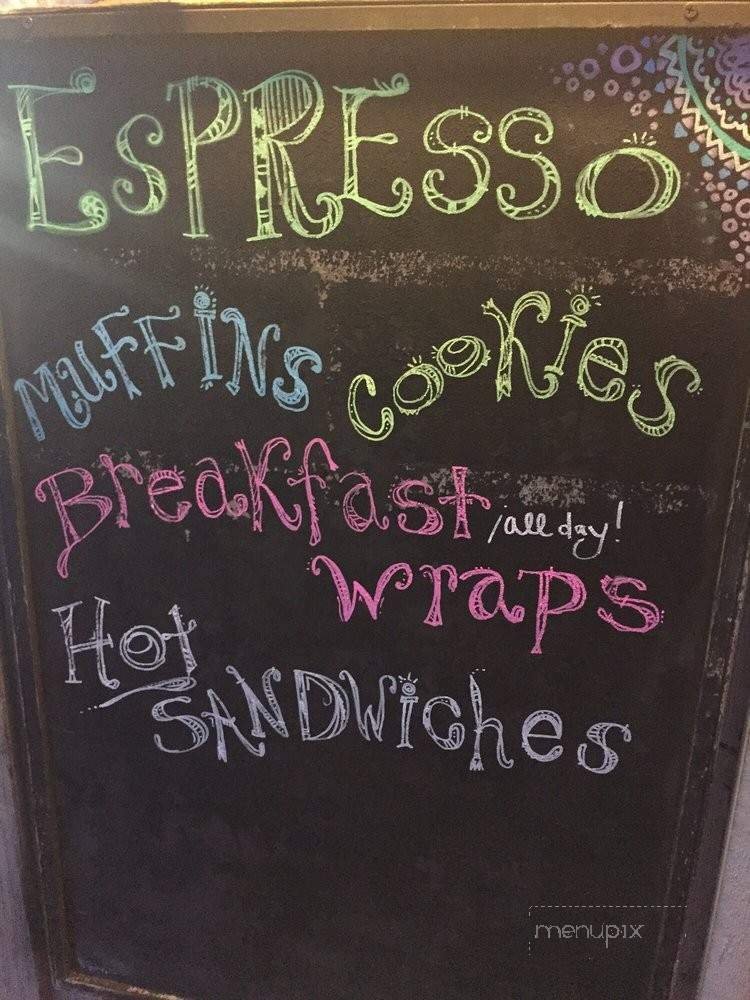 ESPRESSO
MUFFiNS COOKies
Breakfast /all day!
wraps
Hot
SANDWiches
menupix